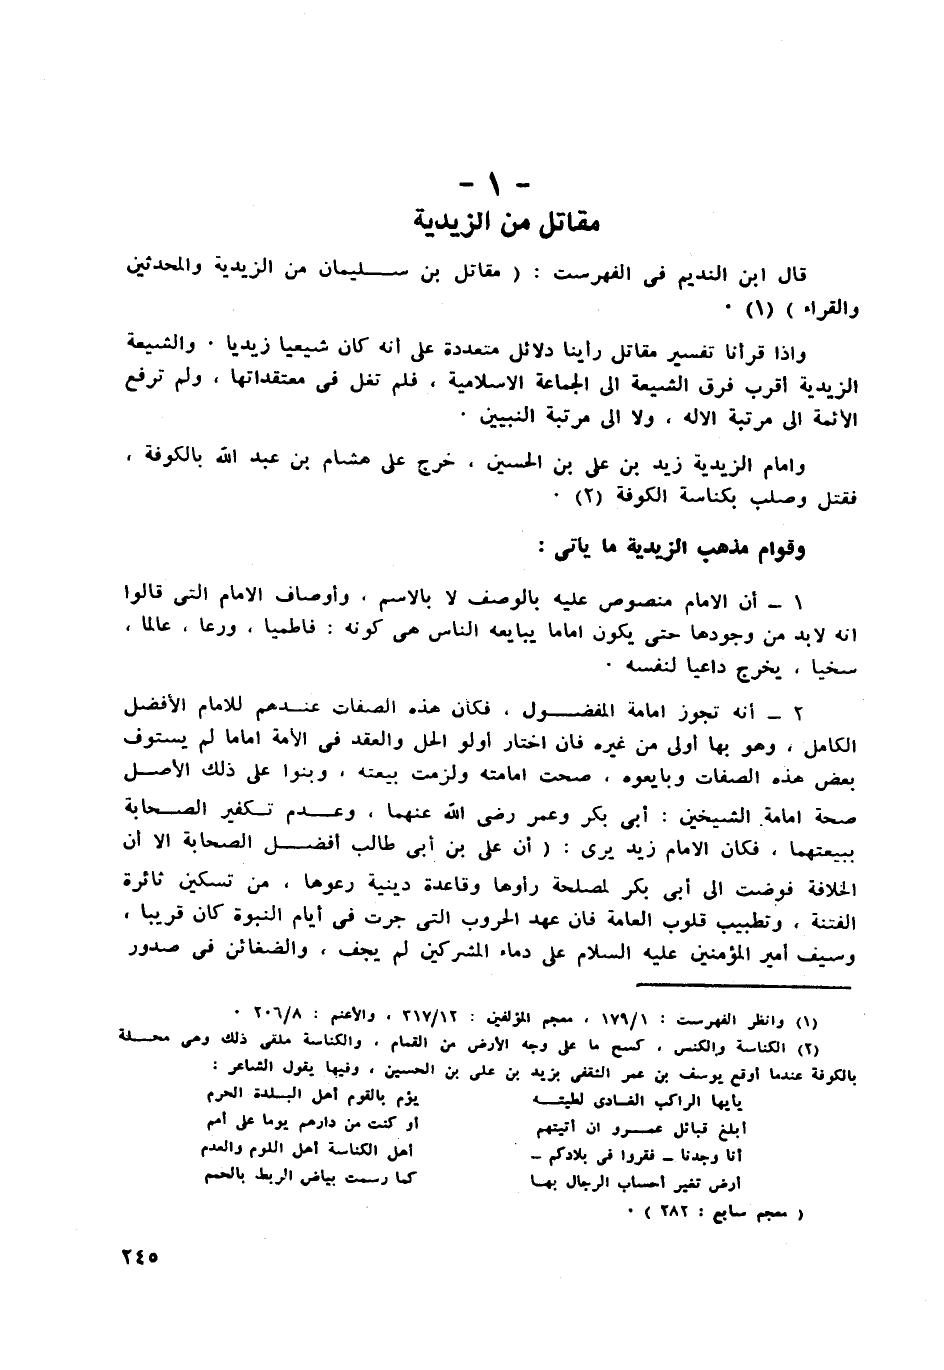 - ١ -
مقاتل من الزيدية
قال ابن النديم فى الفهرست : ( مقاتل بن سليمان من الزيدية والمحدثين
والقراء ) (١) ٠
واذا قرأنا تفسير مقاتل رأينا دلائل متعددة على أنه كان شيعيا زيديا ٠ والشيعة
الزيدية أقرب فرق الشيعة الى الجماعة الاسلامية ، فلم تغل فى معتقداتها ، ولم ترفع
الأئمة الى مرتبة الاله ، ولا الى مرتبة النبيين ٠
وامام الزيدية زيد بن على بن الحسين ، خرج على هشام بن عبد الله بالكوفة ،
فقتل وصلب بكناسة الكوفة (٢) ٠
وقوام مذهب الزيدية ما يأتى :
١ ـ أن الامام منصوص عليه بالوصف لا بالاسم ، وأوصاف الامام التى قالوا
انه لابد من وجودها حتى يكون اماما يبايعه الناس هى كونه : فاطميا ، ورعا ، عالما ،
سخيا ، يخرج داعيا لنفسه ٠
٢ ـ أنه تجوز امامة المفضول ، فكأن هذه الصفات عندهم للامام الأفضل
الكامل ، وهو بها أولى من غيره فان اختار أولو الحل والعقد فى الأمة اماما لم يستوف
بعض هذه الصفات وبايعوه ، صحت امامته ولزمت بيعته ، وبنوا على ذلك الأصل
صحة امامة الشيخين : أبى بكر وعمر رضى الله عنهما ، وعدم تكفير الصحابة
ببيعتهما ، فكان الامام زيد يرى : ( أن على بن أبى طالب أفضل الصحابة الا أن
الخلافة فوضت الى أبى بكر لمصلحة رأوها وقاعدة دينية رعوها ، من تسكين ثائرة
الفتنة ، وتطييب قلوب العامة فان عهد الحروب التى جرت فى أيام النبوة كان قريبا ،
وسيف أمير المؤمنين عليه السلام على دماء المشركين لم يجف ، والضغائن فى صدور
(١) وانظر الفهرست : ١٧٩/١ ، معجم المؤلفين : ٣١٧/١٢ ، والأعلام : ٢٠٦/٨ ٠
(٢) الكناسة والكنس ، كسح ما على وجه الأرض من القمام ، والكناسة ملقى ذلك وهى محلة
بالكوفة عندما أوقع يوسف بن عمر الثقفى بزيد بن على بن الحسين ، وفيها يقول الشاعر :
يأيها الراكب الغادى لطيته يؤم بالقوم أهل البلدة الحرم
أبلغ قبائل عمرو ان أتيتهم أو كنت من دارهم يوما على أمم
أنا وجدنا ـ فقروا فى بلادكم ـ أهل الكناسة أهل اللوم والعدم
أرض تغير أحساب الرجال بها كما رسمت بياض الربط بالحمم
( معجم سابع : ٢٨٢ ) ٠
٢٤٥